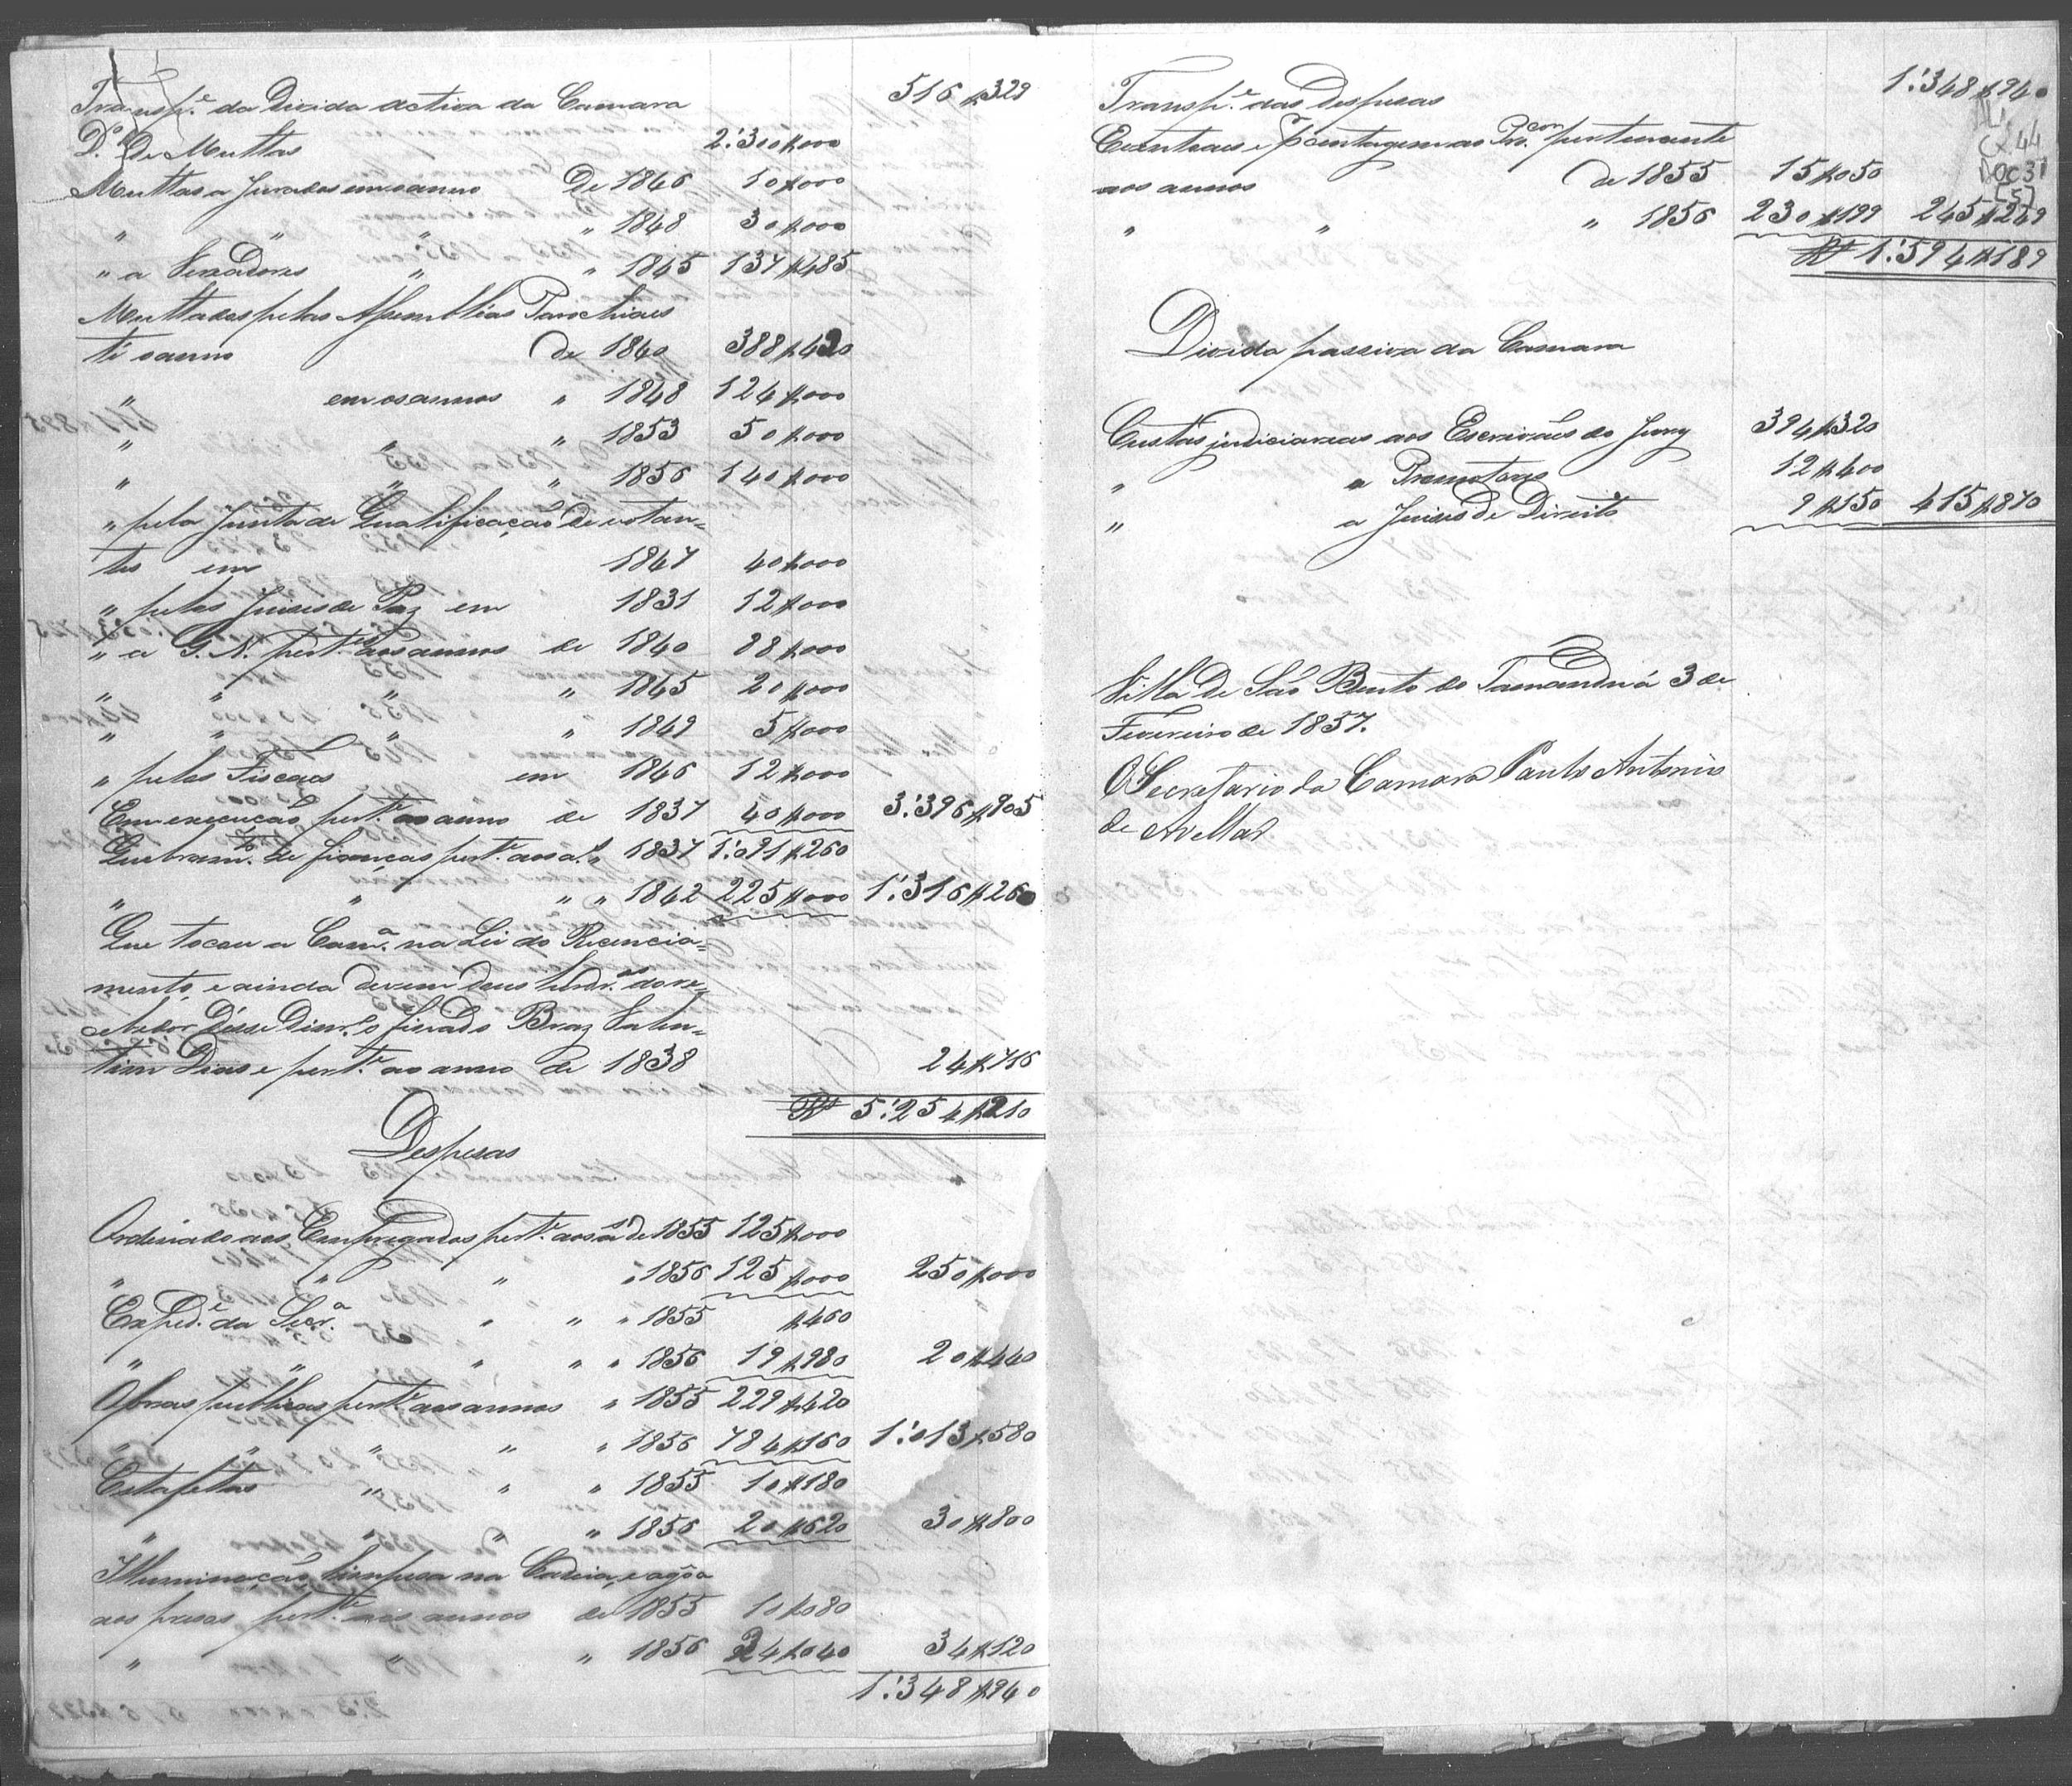 Transp.e da Divida activa da Camara 516$329
D.o De Multas 2:300$000
Multas a Jurados em o anno De 1846 10$000
" " " " 1848 30$000
" a Vereadores " " 1845 137$485
Multados pelas Assembléas Parochiaes
té o anno de 1840 388$420
" em os annos " 1848 124$000
" " " 1853 50$000
" " " 1856 140$000
" pela Junta de Qualificação De votan=
tes em 1847 40$000
" pelos Juises de Paz em 1831 12$000
" a G. N. pert.es aos annos de 1840 88$000
" " " " 1845 20$000
" " " " 1849 5$000
" pelos Fiscaes em 1846 12$000
Em execução pert.e ao anno de 1837 40$000 3:396$905
Quebram.to de fianças pert.e ao a.o " 1837 1:091$260
" " " " 1842 225$000 1:316$260
Que tocou a Cam.a na Lei do Recencia=
mento, e ainda devem Deus herdr.os do re=
cebedor Desse Dinr.o o finado Braz Valen=
tim Dias e pert.e ao anno de 1838 24$716
Rs 5:254$210
Despesas
Ordenado aos Empregados pert.e aos a.s de 1855 125$000
" " " " 1856 125$000 250$000
Exped.e da Secr.a " " " 1855 $460
" " " " " 1856 19$980 20$440
Obras publicas pert.e aos annos " 1855 229$420
" " " " " 1856 784$160 1:013$580
Estafetas " " " 1855 10$180
" " " " 1856 20$620 30$800
Illuminação, limpesa na Cadeia, e agôa
aos presos pert.e aos annos de 1855 10$080
" " " 1856 24$040 34$120
1:348$940
Transp.e das Despesas 1:348$940
Eventuaes e porcentagem ao Pro.con pertencente
aos annos de 1855 15$050
" " " 1856 230$199 245$249
Rs 1:594$189
CX 44
DOC 31
(5)
Divida passiva da Camara
Custas judiciareas aos Escrivães do Jury 394$320
" a Promotores 12$400
" a Juises de Direito 9$150 415$870
Villa de São Bento do Tamanduá 3 de
Fevereiro de 1857.
O Secretario da Camara Paulo Antonio
de Avellar